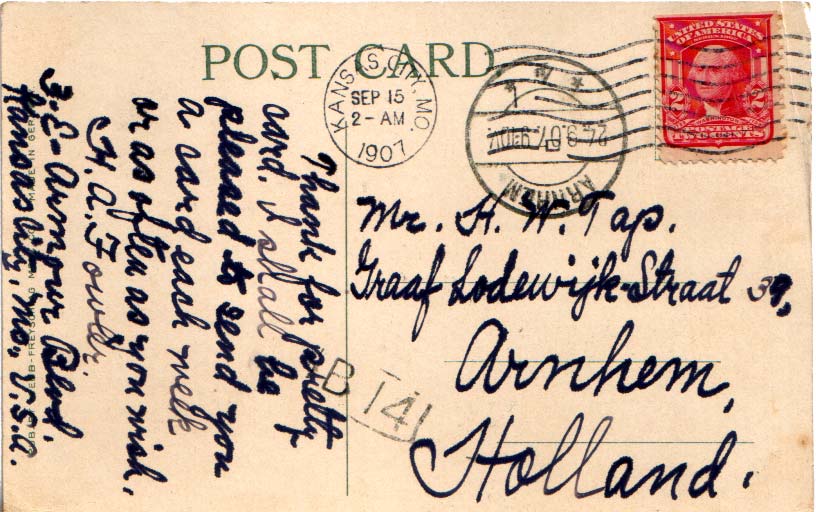 POST CARD
KANSAS CITY, MO.
SEP 15
2-AM
1907
ARNHEM
24.9.07.9-10V
UNITED STATES
OF AMERICA
SERIES 1902
2 2
WASHINGTON
POSTAGE
TWO CENTS
Mr. H. W. Tap.
Graaf Lodewijk-Straat 39,
Arnhem,
Holland.
B 14
Thank for pretty
card. I shall be
pleased to send you
a card each week
or as often as you wish.
H. A. Fowler
3. E- Armour Blvd.
Kansas City, Mo, U.S.A.
MADE IN GER